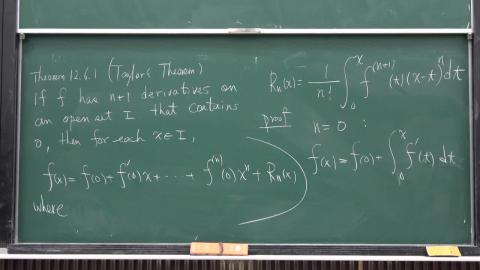 Theorem 12.6.1 (Taylor's Theorem)
If f has n+1 derivatives on
an open set I that contains
0, then for each x∈I,
f(x) = f(0) + f'(0)x + ··· + f^(n)(0)x^n + R_n(x)
where
R_n(x) = 1/n! ∫_0^x f^(n+1)(t)(x-t)^n dt
proof
n=0 :
f(x) = f(0) + ∫_0^x f'(t) dt